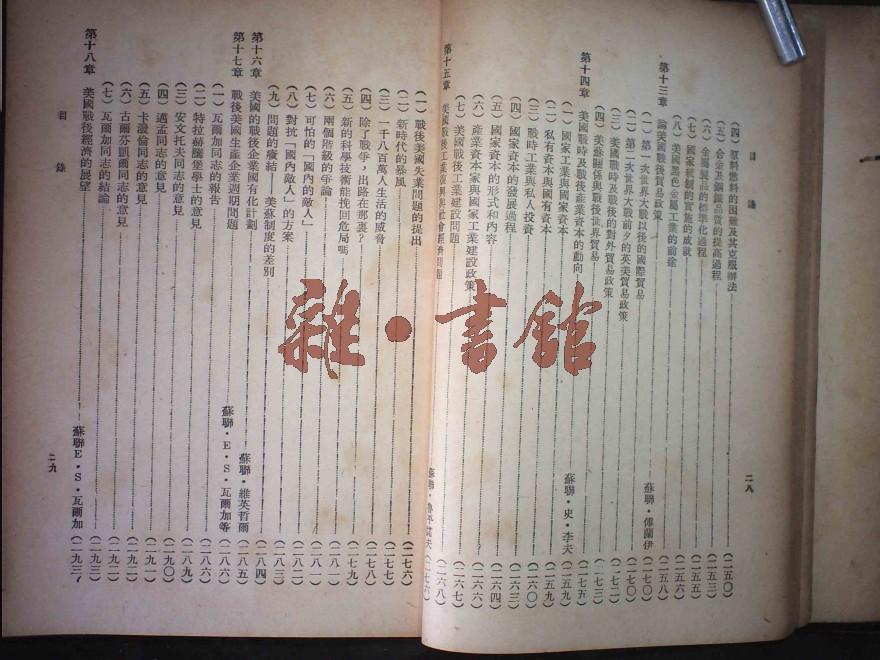 目錄
(四)原料燃料的困難及其克服辦法(二五〇)
(五)合金及鋼鐵品質的提高過程(二五三)
(六)金屬製品的標準化過程(二五五)
(七)國家統制的實施的成就(二五六)
(八)美國黑色金屬工業的前途(二五八)
第十三章 論美國戰後貿易政策 蘇聯・傅蘭伊(二七〇)
(一)第一次世界大戰以後的國際貿易(二七〇)
(二)第二次世界大戰前夕的英美貿易政策(二七二)
(三)美國戰時及戰後的對外貿易政策(二七三)
(四)美蘇關係與戰後世界貿易(二七五)
第十四章 美國戰時及戰後產業資本的動向 蘇聯・史・李夫(二五九)
(一)國家工業與國家資本(二五九)
(二)私有資本與國有資本(二六〇)
(三)戰時工業與私人投資(二六三)
(四)國家資本的發展過程(二六四)
(五)國家資本的形式和內容(二六六)
(六)產業資本家與國家工業建設政策(二六七)
(七)美國戰後工業建設問題(二六八)
第十五章 美國戰後工業復興與社會經濟問題 蘇聯・魯平諾夫(二七六)
二八
(一)戰後美國失業問題的提出(二七六)
(二)新時代的暴風(二七七)
(三)一千八百萬人生活的威脅(二七八)
(四)除了戰爭，出路在那裏？(二七九)
(五)新的科學技術能挽回危局嗎(二八一)
(六)兩個階級的爭論(二八一)
(七)可怕的「國內的敵人」(二八二)
(八)對抗「國內敵人」的方案(二八三)
(九)問題的癥結——美蘇制度的差別(二八四)
第十六章 美國的戰後企業國有化計劃 蘇聯・維英哲爾(二八五)
第十七章 戰後美國生產企業週期問題 蘇聯・E・S・瓦爾加等(二八六)
(一)瓦爾加同志的報告(二八六)
(二)特拉赫騰堡學士的意見(二八九)
(三)安文托夫同志的意見(二九〇)
(四)邁孟同志的意見(二九一)
(五)卡潑倫同志的意見(二九二)
(六)古爾芬凱爾同志的意見(二九二)
(七)瓦爾加同志的結論(二九三)
第十八章 美國戰後經濟的展望 蘇聯E・S・瓦爾加(二九三)
目錄
二九
雜・書館